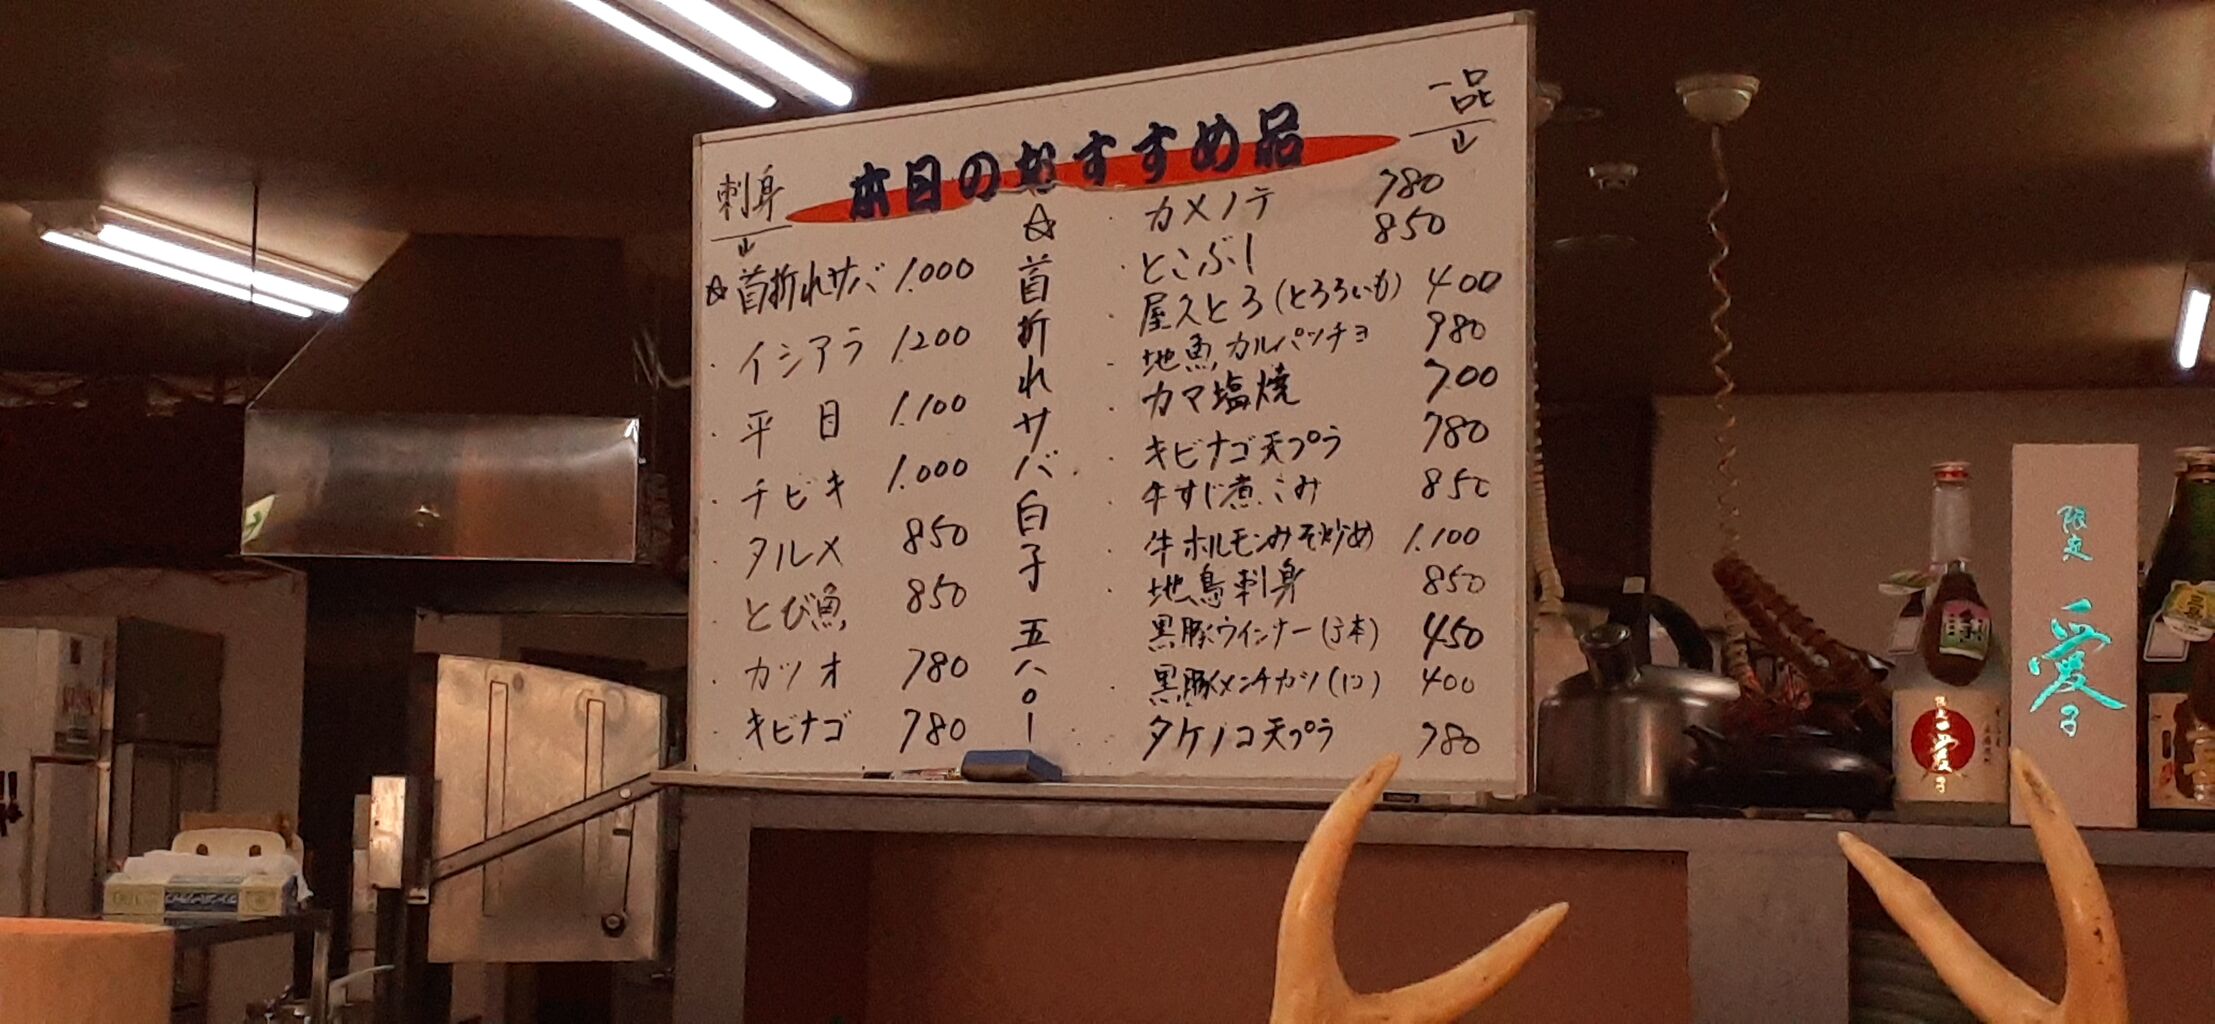 本日のおすすめ品
刺身
☆首折れサバ 1.000
・イシアラ 1.200
・平目 1.100
・チビキ 1.000
・タルメ 850
・とび魚 850
・カツオ 780
・キビナゴ 780
☆首折れサバ白子 五八〇ー
一品
・カメノテ 780
・とこぶし 850
・屋久とろ(とろろいも) 400
・地魚カルパッチョ 980
・カマ塩焼 700
・キビナゴ天プラ 780
・牛すじ煮こみ 850
・牛ホルモンみそ炒め 1.100
・地鳥刺身 850
・黒豚ウインナー(3本) 450
・黒豚メンチカツ(1コ) 400
・タケノコ天プラ 780
限定
愛子
限定
愛子